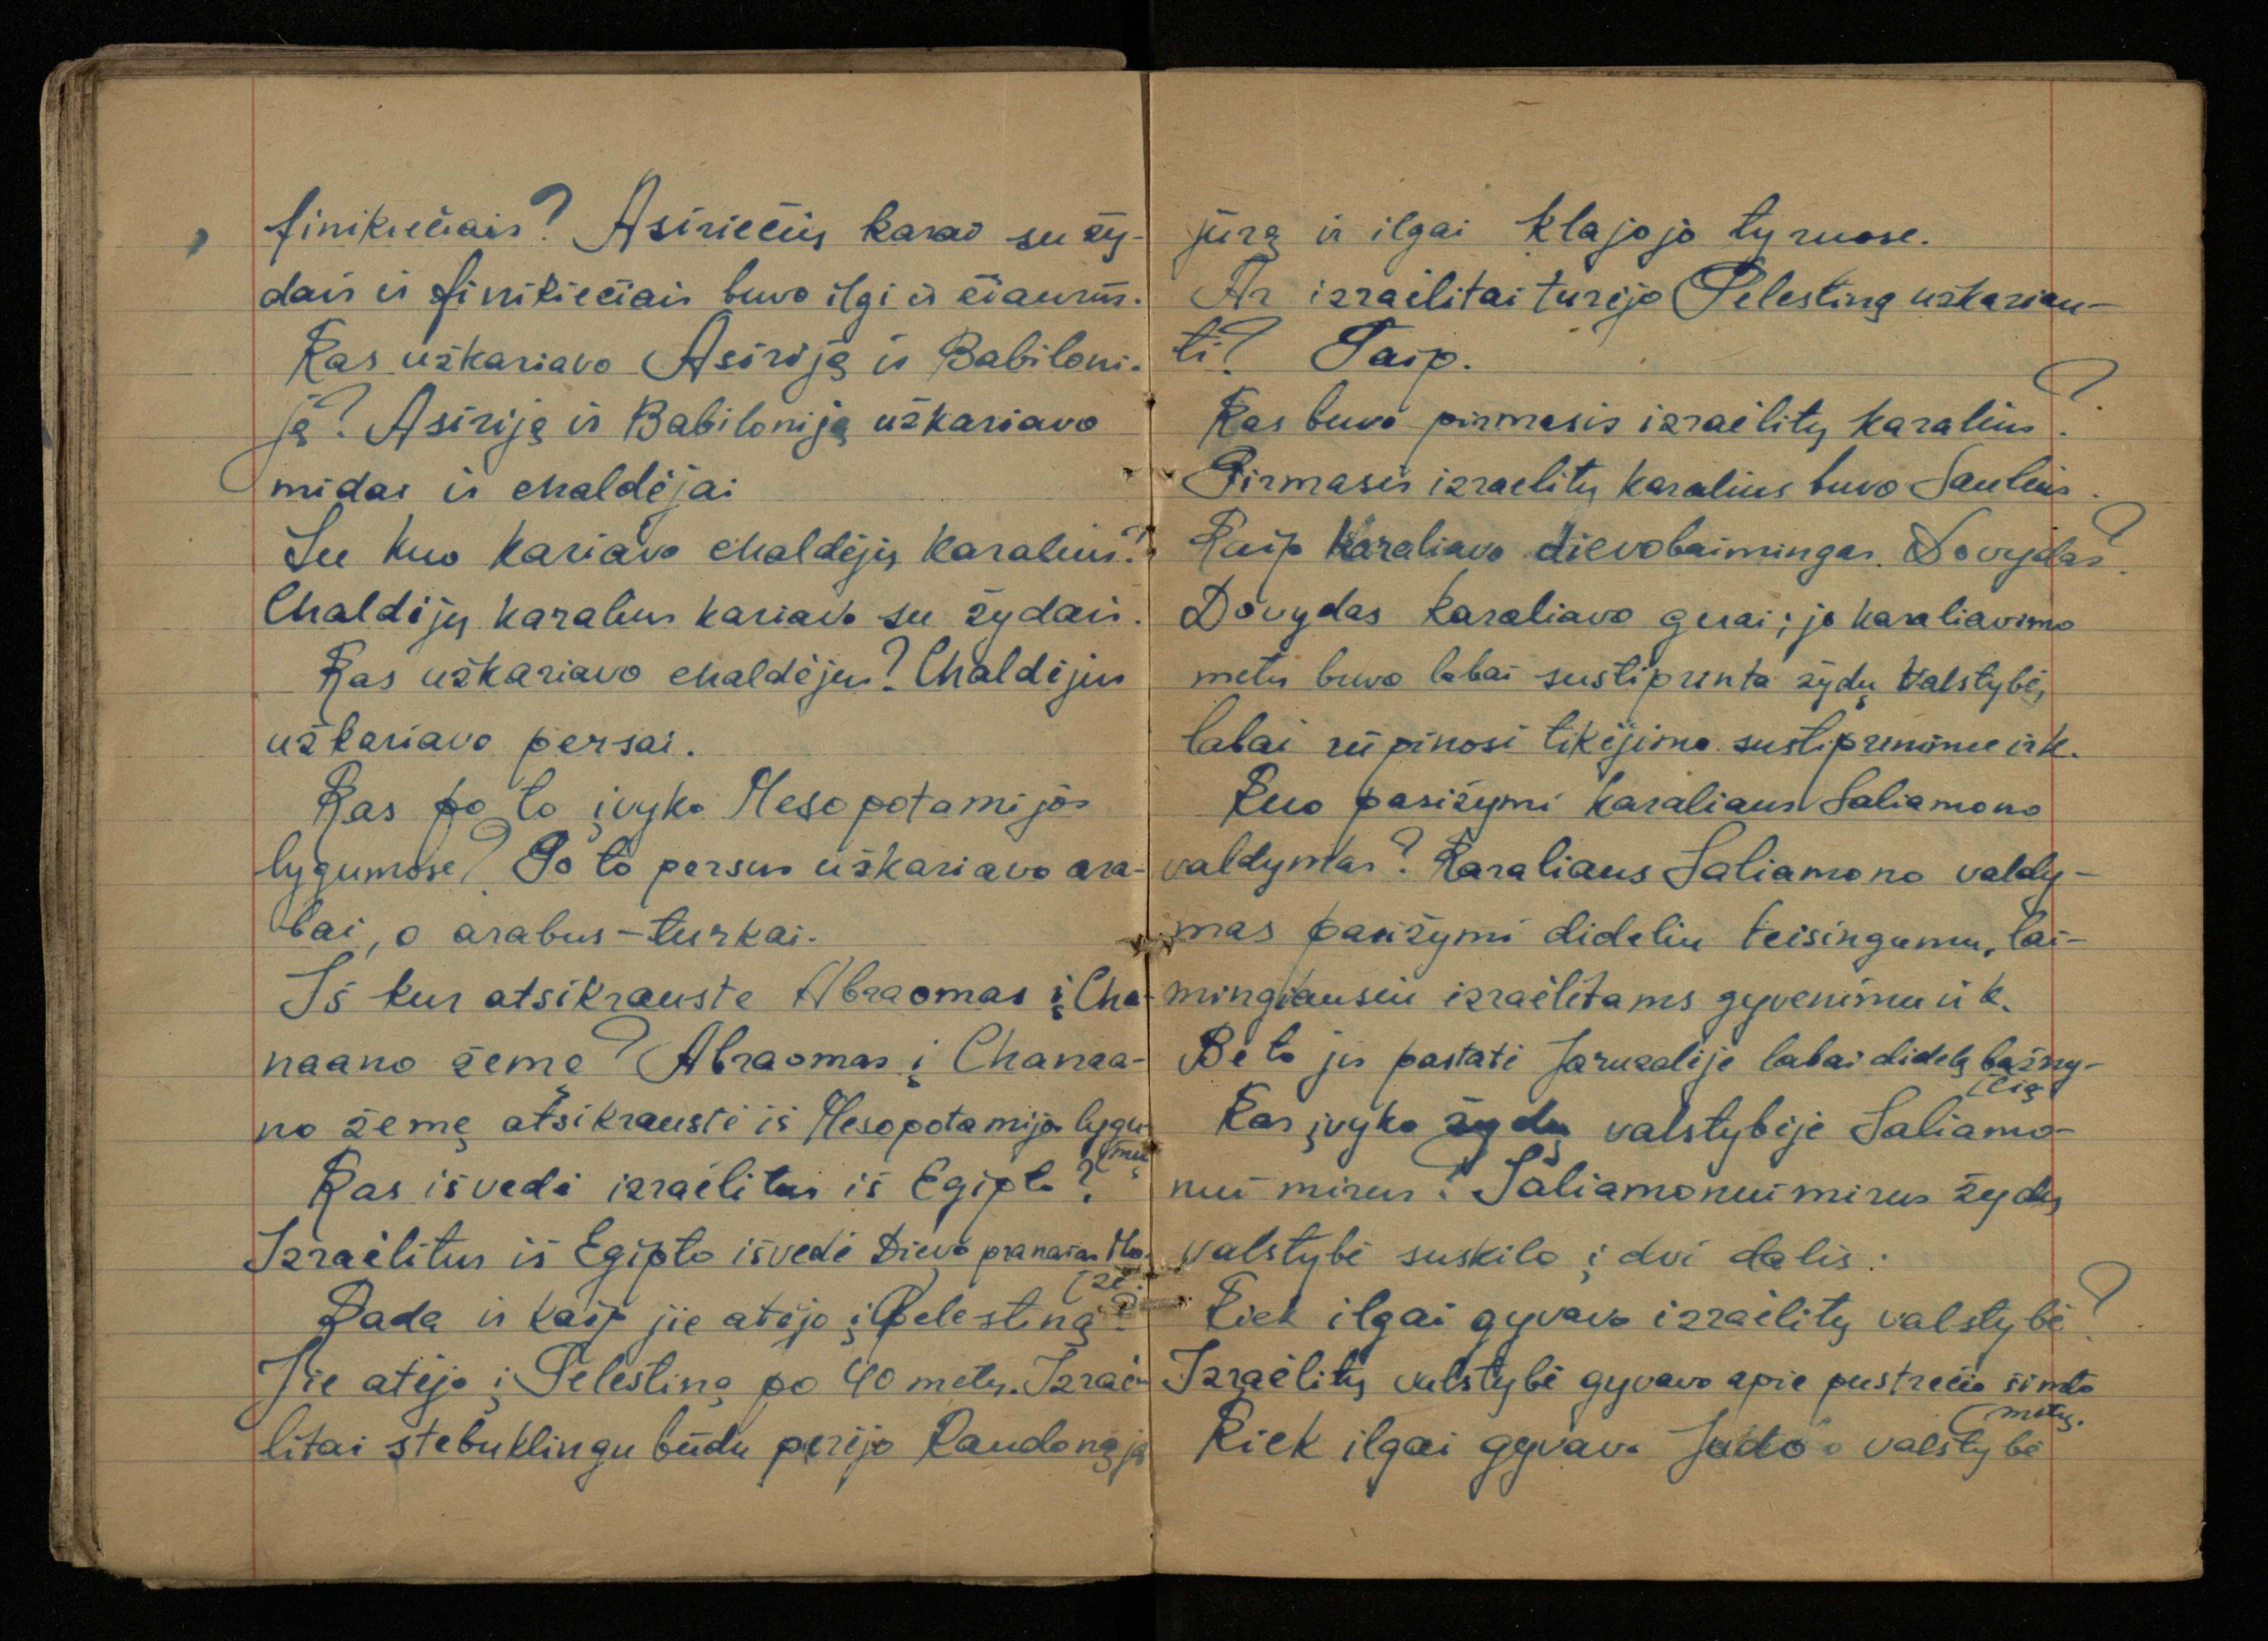 finikiečiais? Asiriečių karai su žy-
dais ir finikiečiais buvo ilgi ir žiaurūs.
Kas užkariavo Asiriją ir Babiloni-
ją? Asiriją ir Babiloniją užkariavo
midas ir chaldėjai
Su kuo kariavo chaldėjų karalius?
Chaldėjų karalius kariavo su žydais.
Kas užkariavo chaldėjus? Chaldėjus
užkariavo persai.
Kas po to įvyko Mesopotamijos
lygumose? Po to persus užkariavo ara-
bai, o arabus – turkai.
Iš kur atsikraustė Abraomas į Cha-
naano žemę? Abraomas į Chanaa-
no žemę atsikraustė iš Mesopotamijos lygu-
mų
Kas išvedė izraėlitus iš Egipto?
Izraėlitus iš Egipto išvedė Dievo pranašas Mo-
zė.
Kada ir kaip jie atėjo į Pelestiną?
Jie atėjo į Pelestiną po 40 metų. Izraė-
litai stebuklingu būdu perėjo Raudonąją
jūrą ir ilgai klajojo tyruose.
Ar izraėlitai turėjo Pelestiną užkariau-
ti? Taip.
Kas buvo pirmasis izraėlitų karalius?
Pirmasis izraelitų karalius buvo Saulius.
Kaip karaliavo dievobaimingas Dovydas?
Dovydas karaliavo gerai; jo karaliavimo
metu buvo labai sustiprinta žydų valstybė,
labai rūpinosi tikėjimo sustiprinimu ir k.
Kuo pasižymi karaliaus Saliamono
valdymas? Karaliaus Saliamono valdy-
mas pasižymi dideliu teisingumu, lai-
mingiausiu izraėlitams gyvenimu ir k.
Be to jis pastatė Jaruzalėje labai didelę bažny-
čią
Kas įvyko žydų valstybėje Saliamo-
nui mirus? Saliamonui mirus žydų
valstybė suskilo į dvi dalis.
Kiek ilgai gyvavo izraėlitų valstybė?
Izraėlitų valstybė gyvavo apie pustrečio šimto
metų.
Kiek ilgai gyvavo Judo valstybė